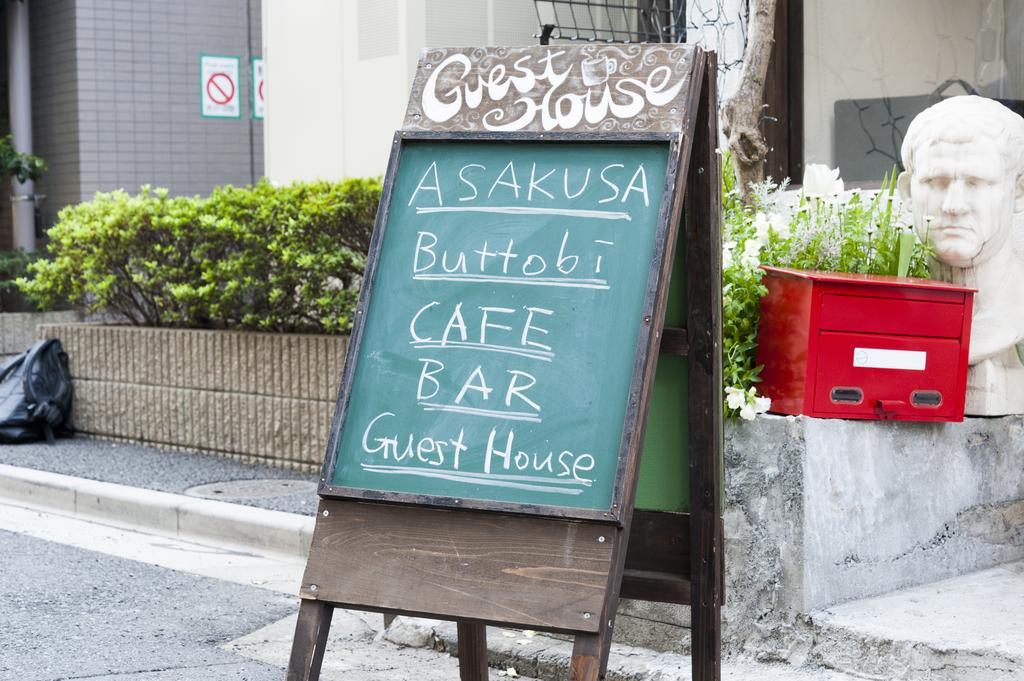 Guest
House
ASAKUSA
Buttobi
CAFE
BAR
Guest House